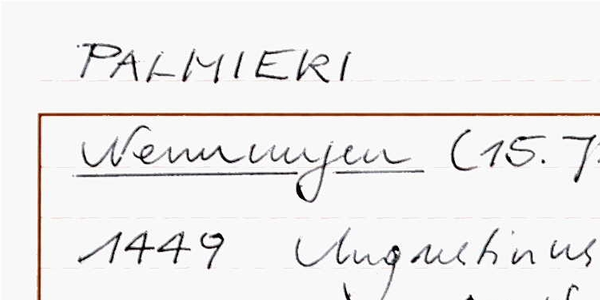 PALMIERI
Nennungen (15. 7
1449 Augustinus